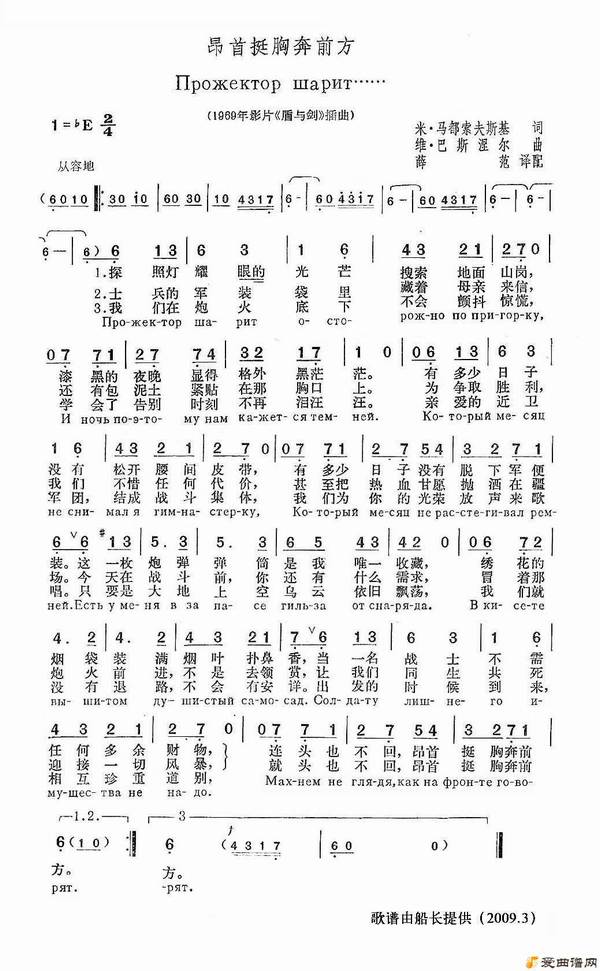 昂首挺胸奔前方
Прожектор шарит……
(1969年影片《盾与剑》插曲)
1=♭E 2/4
米·马都索夫斯基 词
维·巴斯涅尔 曲
薛范 译配
从容地
(6010 30 10 30 10 04317 6- 6- 04317 6- 6-
6- 6) 6 13 6 3 3 1 1 6 43 21 270
1.探照灯耀眼的光芒 搜索地面山岗,
2.士兵的军装袋里 藏着母亲来信,
3.我们在炮火底下 不会颤抖惊慌,
Про-жек-тор ша-рит о-сто-рож-но по при-гор-ку,
07 71 2 2 7 24 32 17 1 0 06 13 6 3
漆黑的夜晚显得格外黑茫茫。 有多少日子
还有包泥土紧贴在那胸口上。 为争取胜利,
学会了告别时刻不再泪汪汪。 亲爱的近卫
И ночь по-э-то-му нам ка-жет-ся тем-ней. Ко-то-рый ме-сяц
1 6 43 2 1 2 7 07 71 2 2 7 2 4 3 2 17
没有松开腰间皮带, 有多少日子没有脱下军便
我们不惜任何代价, 甚至把热血甘愿抛洒在疆
军团,结成战斗集体, 我们为你的光荣放声来歌
не сни-мал я гим-на-стер-ку, Ко-то-рый ме-сяц не рас-сте-ги-вал рем-
6 6 ∨6 #13 5. 3 5. 3 5 6 5 4 42 0 06 72
装。这一枚炮弹弹筒是我唯一收藏, 绣花的
场。今天在战斗前,你还有什么需求, 冒着那
唱。只要是大地上空乌云依旧飘荡, 我们就
ней. Есть у ме-ня в за-па-се гиль-за от сна-ря-да. В ки-се-те
4. 2 4. 2 4 5 4 3 7 ∨6 13 6 3 1 6
烟袋装满烟叶扑鼻香,当一名战士不需
炮火前进,不是去领赏,让我们同生共死
没有退路,不会有安详。出发的时候到来,
вы-ши-том ду-ши-стый са-мо-сад. Сол-да-ту лиш-не-го и-
4 3 2 1 2 7 0 07 71 2 7 4 3 271
任何多余财物, 连头也不回,昂首挺胸奔前
迎接一切风暴, 就头也不回,昂首挺胸奔前
相互珍重道别,
му-ще-ст-ва не на-до. Мах-нем не гля-дя, как на фрон-те го-во-
1.2. 3
6 (10) 6 (4317 6 0 0 0)
方。 方。
рят. -рят.
歌谱由船长提供(2009.3)
爱曲谱网